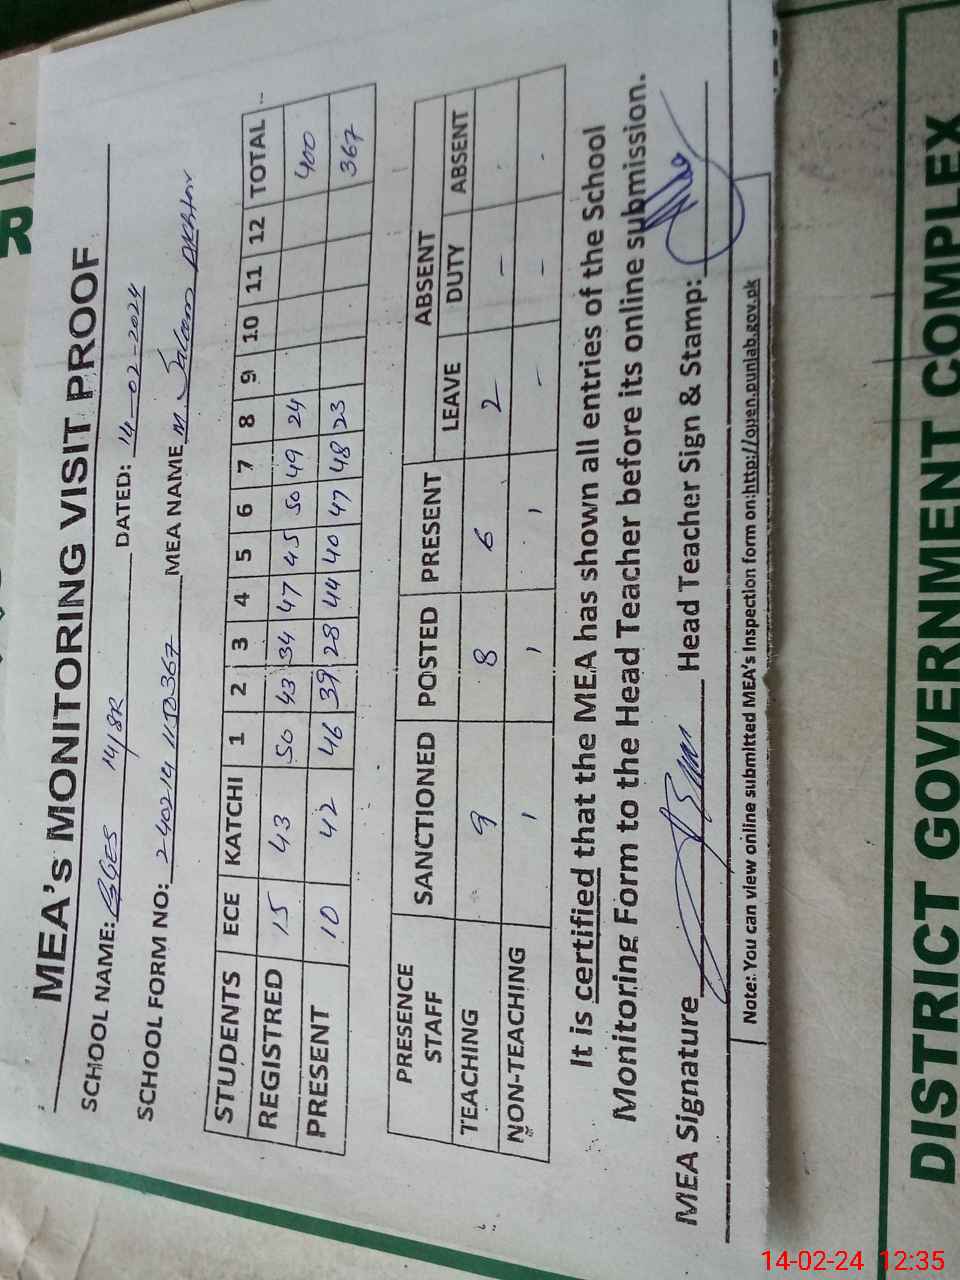 R
MEA's MONITORING VISIT PROOF
SCHOOL NAME: GGES 14/8R DATED: 14-02-2024
SCHOOL FORM NO: MEA NAME M.
STUDENTS ECE KATCHI 1 2 3 4 5 6 7 8 9 10 11 12 TOTAL
REGISTRED 15 43 50 43 34 47 45 50 49 24 400
PRESENT 10 42 46 39 28 44 40 47 48 23 367
PRESENCE STAFF SANCTIONED POSTED PRESENT ABSENT
LEAVE DUTY ABSENT
TEACHING 9 8 6 2 - -
NON-TEACHING 1 1 1 - - -
It is certified that the MEA has shown all entries of the School
Monitoring Form to the Head Teacher before its online submission.
MEA Signature Head Teacher Sign & Stamp:
Note: You can view online submitted MEA's Inspection form on:http://open.punjab.gov.pk
DISTRICT GOVERNMENT COMPLEX
14-02-24 12:35